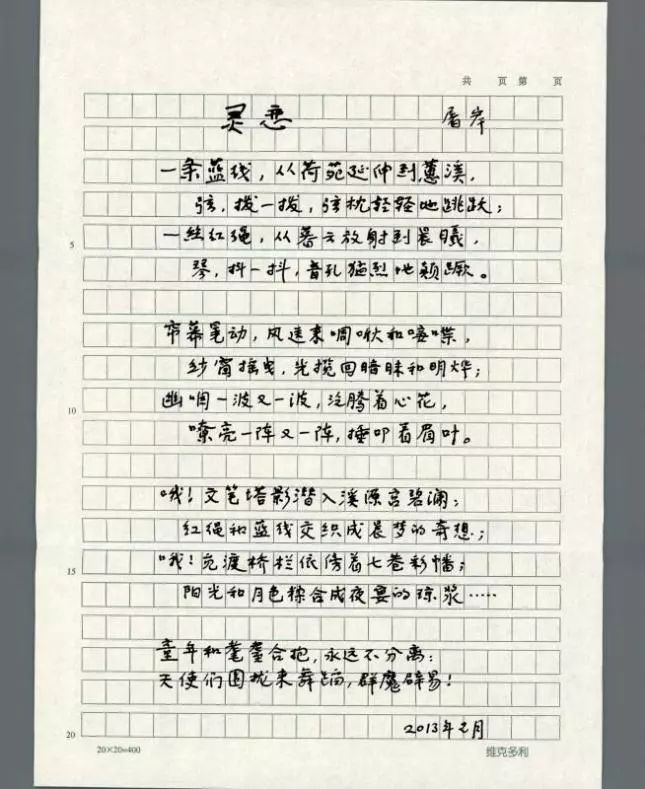 共 页 第 页
灵恋 屠岸
一条蓝线，从荷苑延伸到蕙溪，
弦，拨一拨，弦枕轻轻地跳跃；
5
一丝红绳，从暮云放射到晨曦，
琴，抖一抖，音孔猛烈地颠蹶。
帘幕笔动，风送来啁啾和嗟喋，
纱窗摇曳，光搅回暗昧和明烨；
10
幽咽一波又一波，泛腾着心花，
嘹亮一阵又一阵，捶叩着眉叶。
哦！文笔塔影潜入溪源宫碧澜；
红绳和蓝线交织成晨梦的奇想；
15
哦！觅渡桥栏依傍着七卷彩幡；
阳光和月色糅合成夜宴的琼浆……
童年和耄耋合抱，永远不分离：
天使们围拢来舞蹈，群魔辟易！
2013年元月
20
20×20=400
维克多利